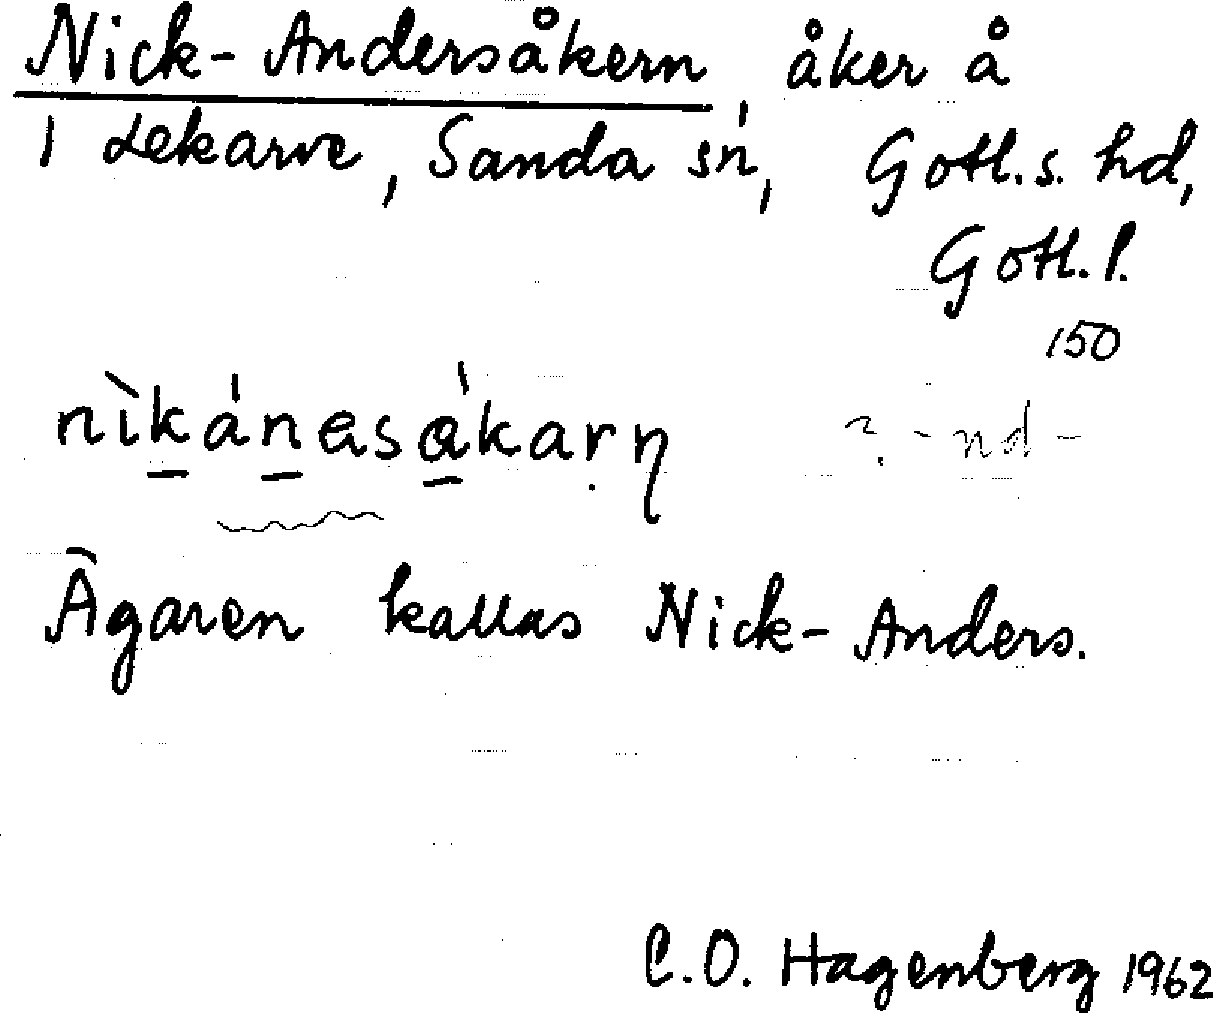 Nick-Andersåkern, åker å
1 Lekarve, Sanda sn, Gotl. s. hd,
Gotl. l.
150
nìkánasákarn ? -nd-
Ägaren kallas Nick-Anders.
C.O. Hagenberg 1962